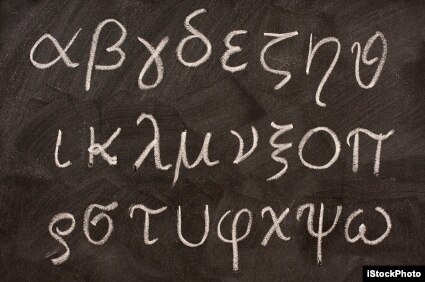 αβγδεζηθ
ικλμνξοπ
ρστυφχψω
iStockPhoto